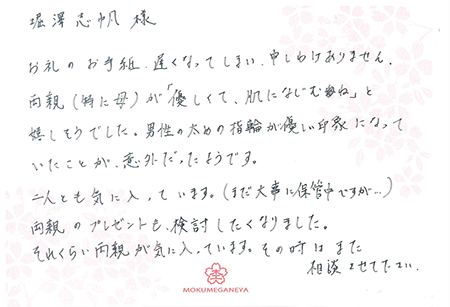 堀澤志帆 様
お礼のお手紙、遅くなってしまい、申しわけありません。
両親(特に母)が「優しくて、肌になじむね」と
嬉しそうでした。男性の太めの指輪が優しい印象になって
いたことが、意外だったようです。
二人とも気に入っています。(まだ大事に保管中ですが…)
両親のプレゼントも、検討したくなりました。
それくらい両親が気に入っています。その時はまた
相談させて下さい。
MOKUMEGANEYA